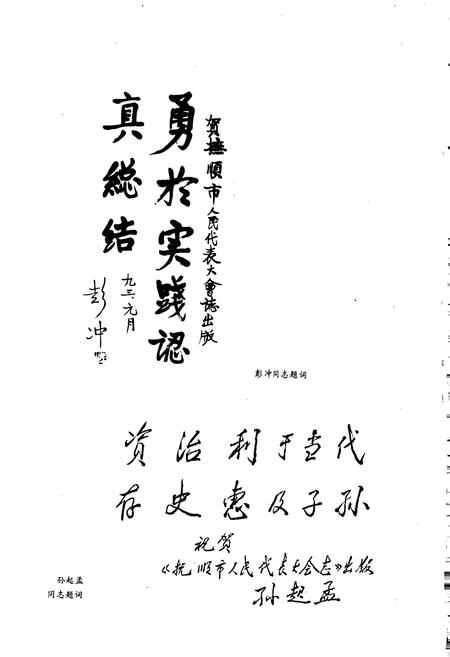 賀撫順市人民代表大會誌出版
勇於实践認
真総结
九三.元月
彭冲
彭冲同志题词
资治利于当代
存史惠及子孙
祝贺
《抚顺市人民代表大会志》出版
孙起孟
孙起孟
同志题词